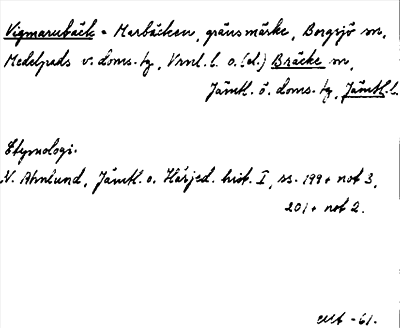 Vigmarubäck = Marbäcken, gränsmärke, Borgsjö sn,
Medelpads v. doms. tg, Vnrl. l. o. (el.) Bräcke sn,
Jämtl. ö. doms. tg, Jämtl. l.
Etymologi.
N. Ahnlund, Jämtl. o. Härjed. hist. I, ss. 199 + not 3,
201 + not 2.
-61.